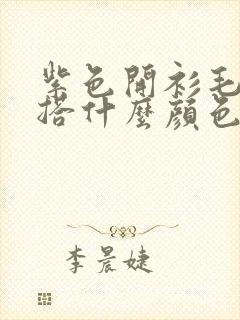 紫色開衫毛
搭什麼顏色
李晨婕